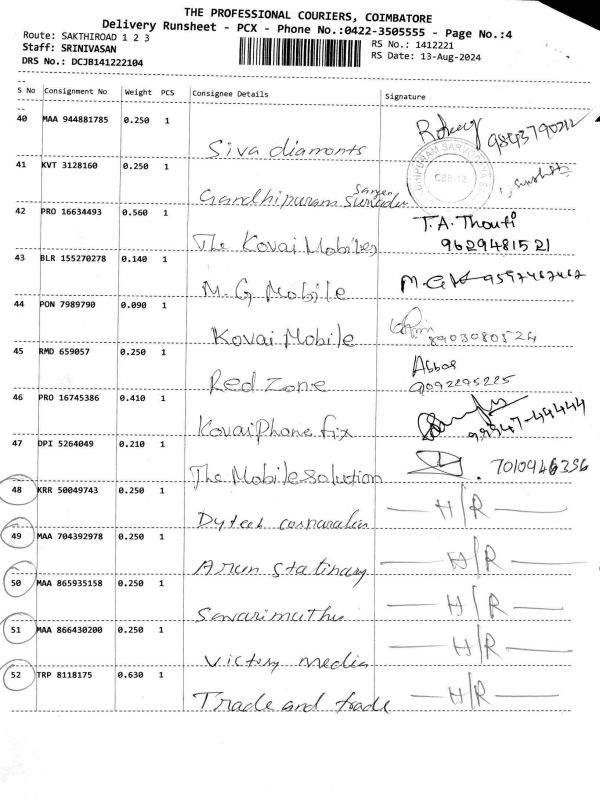 THE PROFESSIONAL COURIERS, COIMBATORE
Delivery Runsheet - PCX - Phone No.:0422-3505555 - Page No.:4
Route: SAKTHIROAD 1 2 3
RS No.: 1412221
Staff: SRINIVASAN
RS Date: 13-Aug-2024
DRS No.: DCJB141222104
S No Consignment No Weight PCS Consignee Details Signature
40 MAA 944881785 0.250 1
Siva diamonts
41 KVT 3128160 0.250 1
Gandhipuram
42 PRO 16634493 0.560 1 T.A.
The Kovai Mobiles 9629481521
43 BLR 155270278 0.140 1
M.G Mobile
44 PON 7989790 0.090 1
Kovai Mobile 8903080524
45 RMD 659057 0.250 1 Abbas
Red Zone 9092295225
46 PRO 16745386 0.410 1
KovaiPhone fix
47 DPI 5264049 0.210 1
The Mobile solution
48 KRR 50049743 0.250 1 H/R
49 MAA 704392978 0.250 1 H/R
Arun Stationary
50 MAA 865935158 0.250 1 H/R
Savarimuthu
51 MAA 866430200 0.250 1 H/R
Victory media
52 TRP 8118175 0.630 1 H/R
Trade and trade